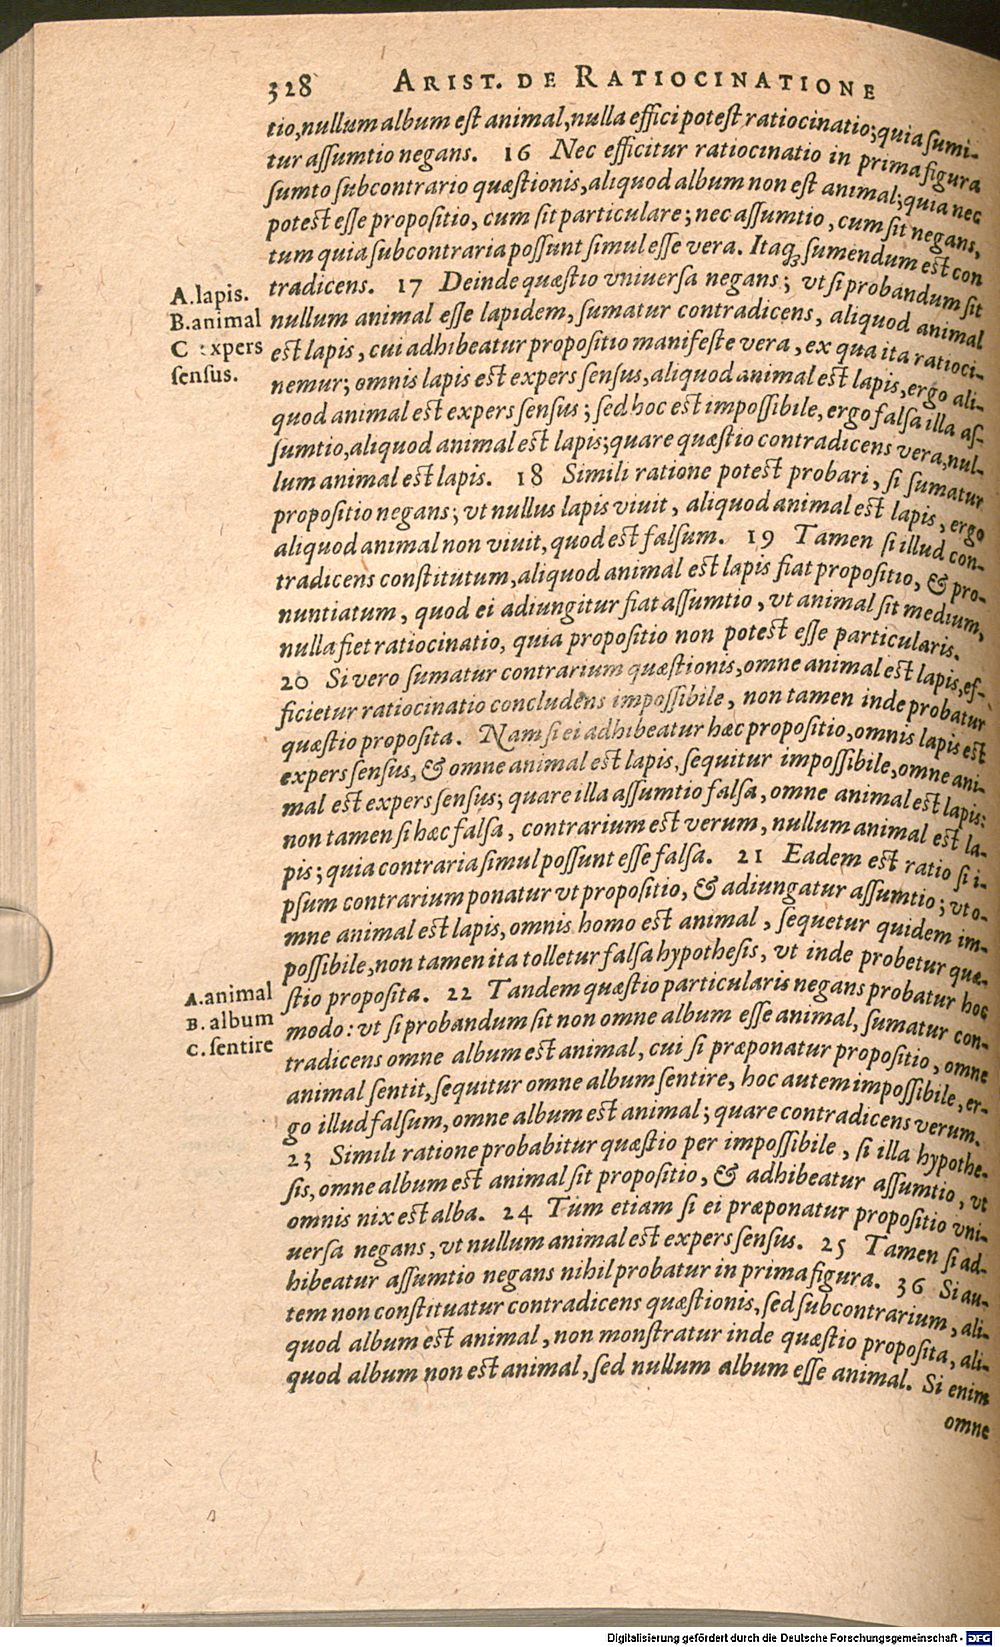 328 ARIST. DE RATIOCINATIONE
tio,nullum album est animal,nulla effici potest ratiocinatio;quia sumi-
tur assumtio negans. 16 Nec efficitur ratiocinatio in prima figura
sumto subcontrario quæstionis,aliquod album non est animal;quia nec
potest esse propositio, cum sit particulare; nec assumtio, cum sit negans,
tum quia subcontraria possunt simul esse vera. Itaq; sumendum est con
tradicens. 17 Deinde quæstio vniuersa negans; vt si probandum sit
A.lapis.
B.animal
C expers
sensus.
nullum animal esse lapidem, sumatur contradicens, aliquod animal
est lapis, cui adhibeatur propositio manifeste vera, ex qua ita ratioci-
nemur; omnis lapis est expers sensus,aliquod animal est lapis,ergo ali-
quod animal est expers sensus; sed hoc est impossibile, ergo falsa illa as-
sumtio,aliquod animal est lapis;quare quæstio contradicens vera,nul-
lum animal est lapis. 18 Simili ratione potest probari, si sumatur
propositio negans; vt nullus lapis viuit, aliquod animal est lapis, ergo
aliquod animal non viuit, quod est falsum. 19 Tamen si illud con-
tradicens constitutum,aliquod animal est lapis fiat propositio, & pro-
nuntiatum, quod ei adiungitur fiat assumtio, vt animal sit medium,
nulla fiet ratiocinatio, quia propositio non potest esse particularis.
20 Si vero sumatur contrarium quæstionis,omne animal est lapis,ef-
ficietur ratiocinatio concludens impossibile, non tamen inde probatur
quæstio proposita. Nam si ei adhibeatur hæc propositio,omnis lapis est
expers sensus, & omne animal est lapis, sequitur impossibile,omne ani-
mal est expers sensus; quare illa assumtio falsa, omne animal est lapis:
non tamen si hæc falsa, contrarium est verum, nullum animal est la-
pis; quia contraria simul possunt esse falsa. 21 Eadem est ratio si i-
psum contrarium ponatur vt propositio, & adiungatur assumtio; vt o-
mne animal est lapis,omnis homo est animal, sequetur quidem im-
possibile,non tamen ita tolletur falsa hypothesis, vt inde probetur quæ-
stio proposita. 22 Tandem quæstio particularis negans probatur hoc
A.animal
B.album
C.sentire
modo: vt si probandum sit non omne album esse animal, sumatur con-
tradicens omne album est animal, cui si præponatur propositio, omne
animal sentit,sequitur omne album sentire, hoc autem impossibile, er-
go illud falsum, omne album est animal; quare contradicens verum.
23 Simili ratione probabitur quæstio per impossibile, si illa hypothe-
sis, omne album est animal sit propositio, & adhibeatur assumtio, vt
omnis nix est alba. 24 Tum etiam si ei præponatur propositio vni-
uersa negans, vt nullum animal est expers sensus. 25 Tamen si ad-
hibeatur assumtio negans nihil probatur in prima figura. 36 Si au-
tem non constituatur contradicens quæstionis,sed subcontrarium, ali-
quod album est animal, non monstratur inde quæstio proposita, ali-
quod album non est animal, sed nullum album esse animal. Si enim
omne
Digitalisierung gefördert durch die Deutsche Forschungsgemeinschaft - DFG